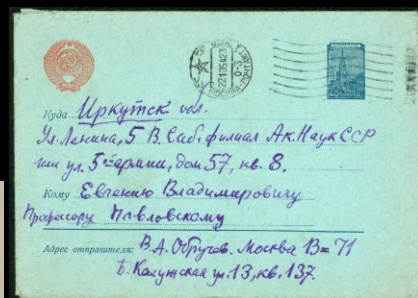 МОСКВА-ПОЧТАМТ
Куда Иркутск обл.
Ул. Ленина, 5 В. Саб. филиал Ак. Наук ССР
или ул. 5ой армии, дом 57, кв. 8.
Кому Евгению Владимировичу
Профессору Павловскому
Адрес отправителя: В. А. Обручев. Москва В=71
Б. Калужская ул. 13, кв. 137.